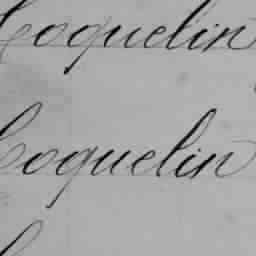 Coquelin
Coquelin